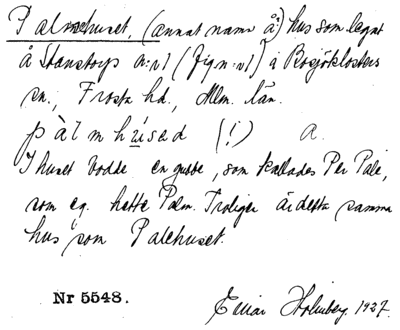 Palmehuset, (annat namn å) hus som legat
å Stanstorp n:r1 (Jign:r1) i Bosjöklosters
sn., Frosta hd., Mlm. län.
pàlmhúsəd (!) a.
I huset bodde en gubbe, som kallades Per Pale,
som eg. hette Palm. Troligen är detta samma
hus som Palehuset.
Nr 5548.
Einar Holmberg. 1927.